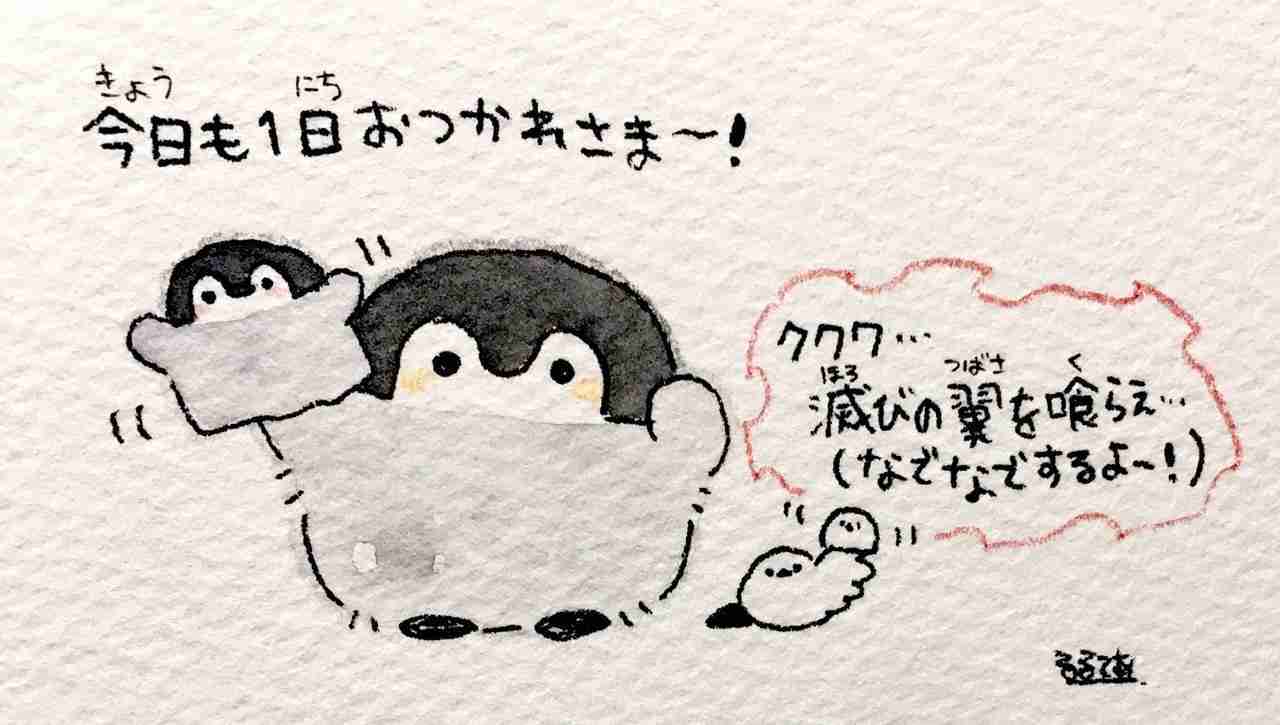 きょう にち
今日も1日おつかれさま〜！
ククク…
ほろ つばさ く
滅びの翼を喰らえ…
（なでなでするよ〜！）
るるてあ